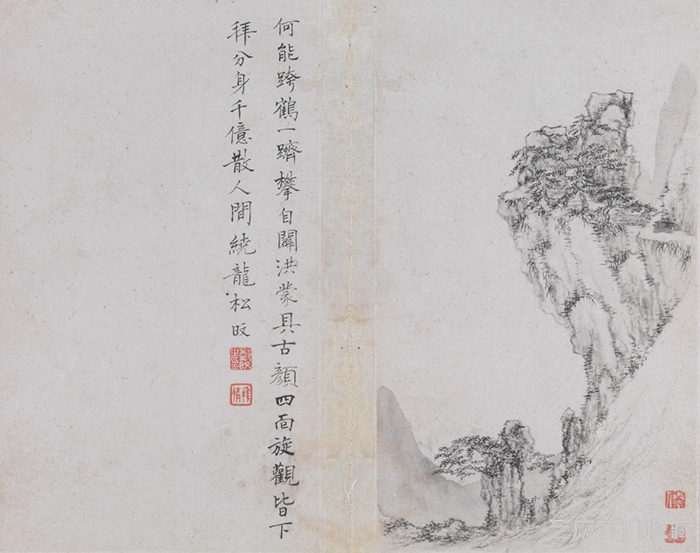 何能跨鶴一躋攀自闢洪蒙具古顏四面旋觀皆下
拜分身千億散人間繞龍松旼